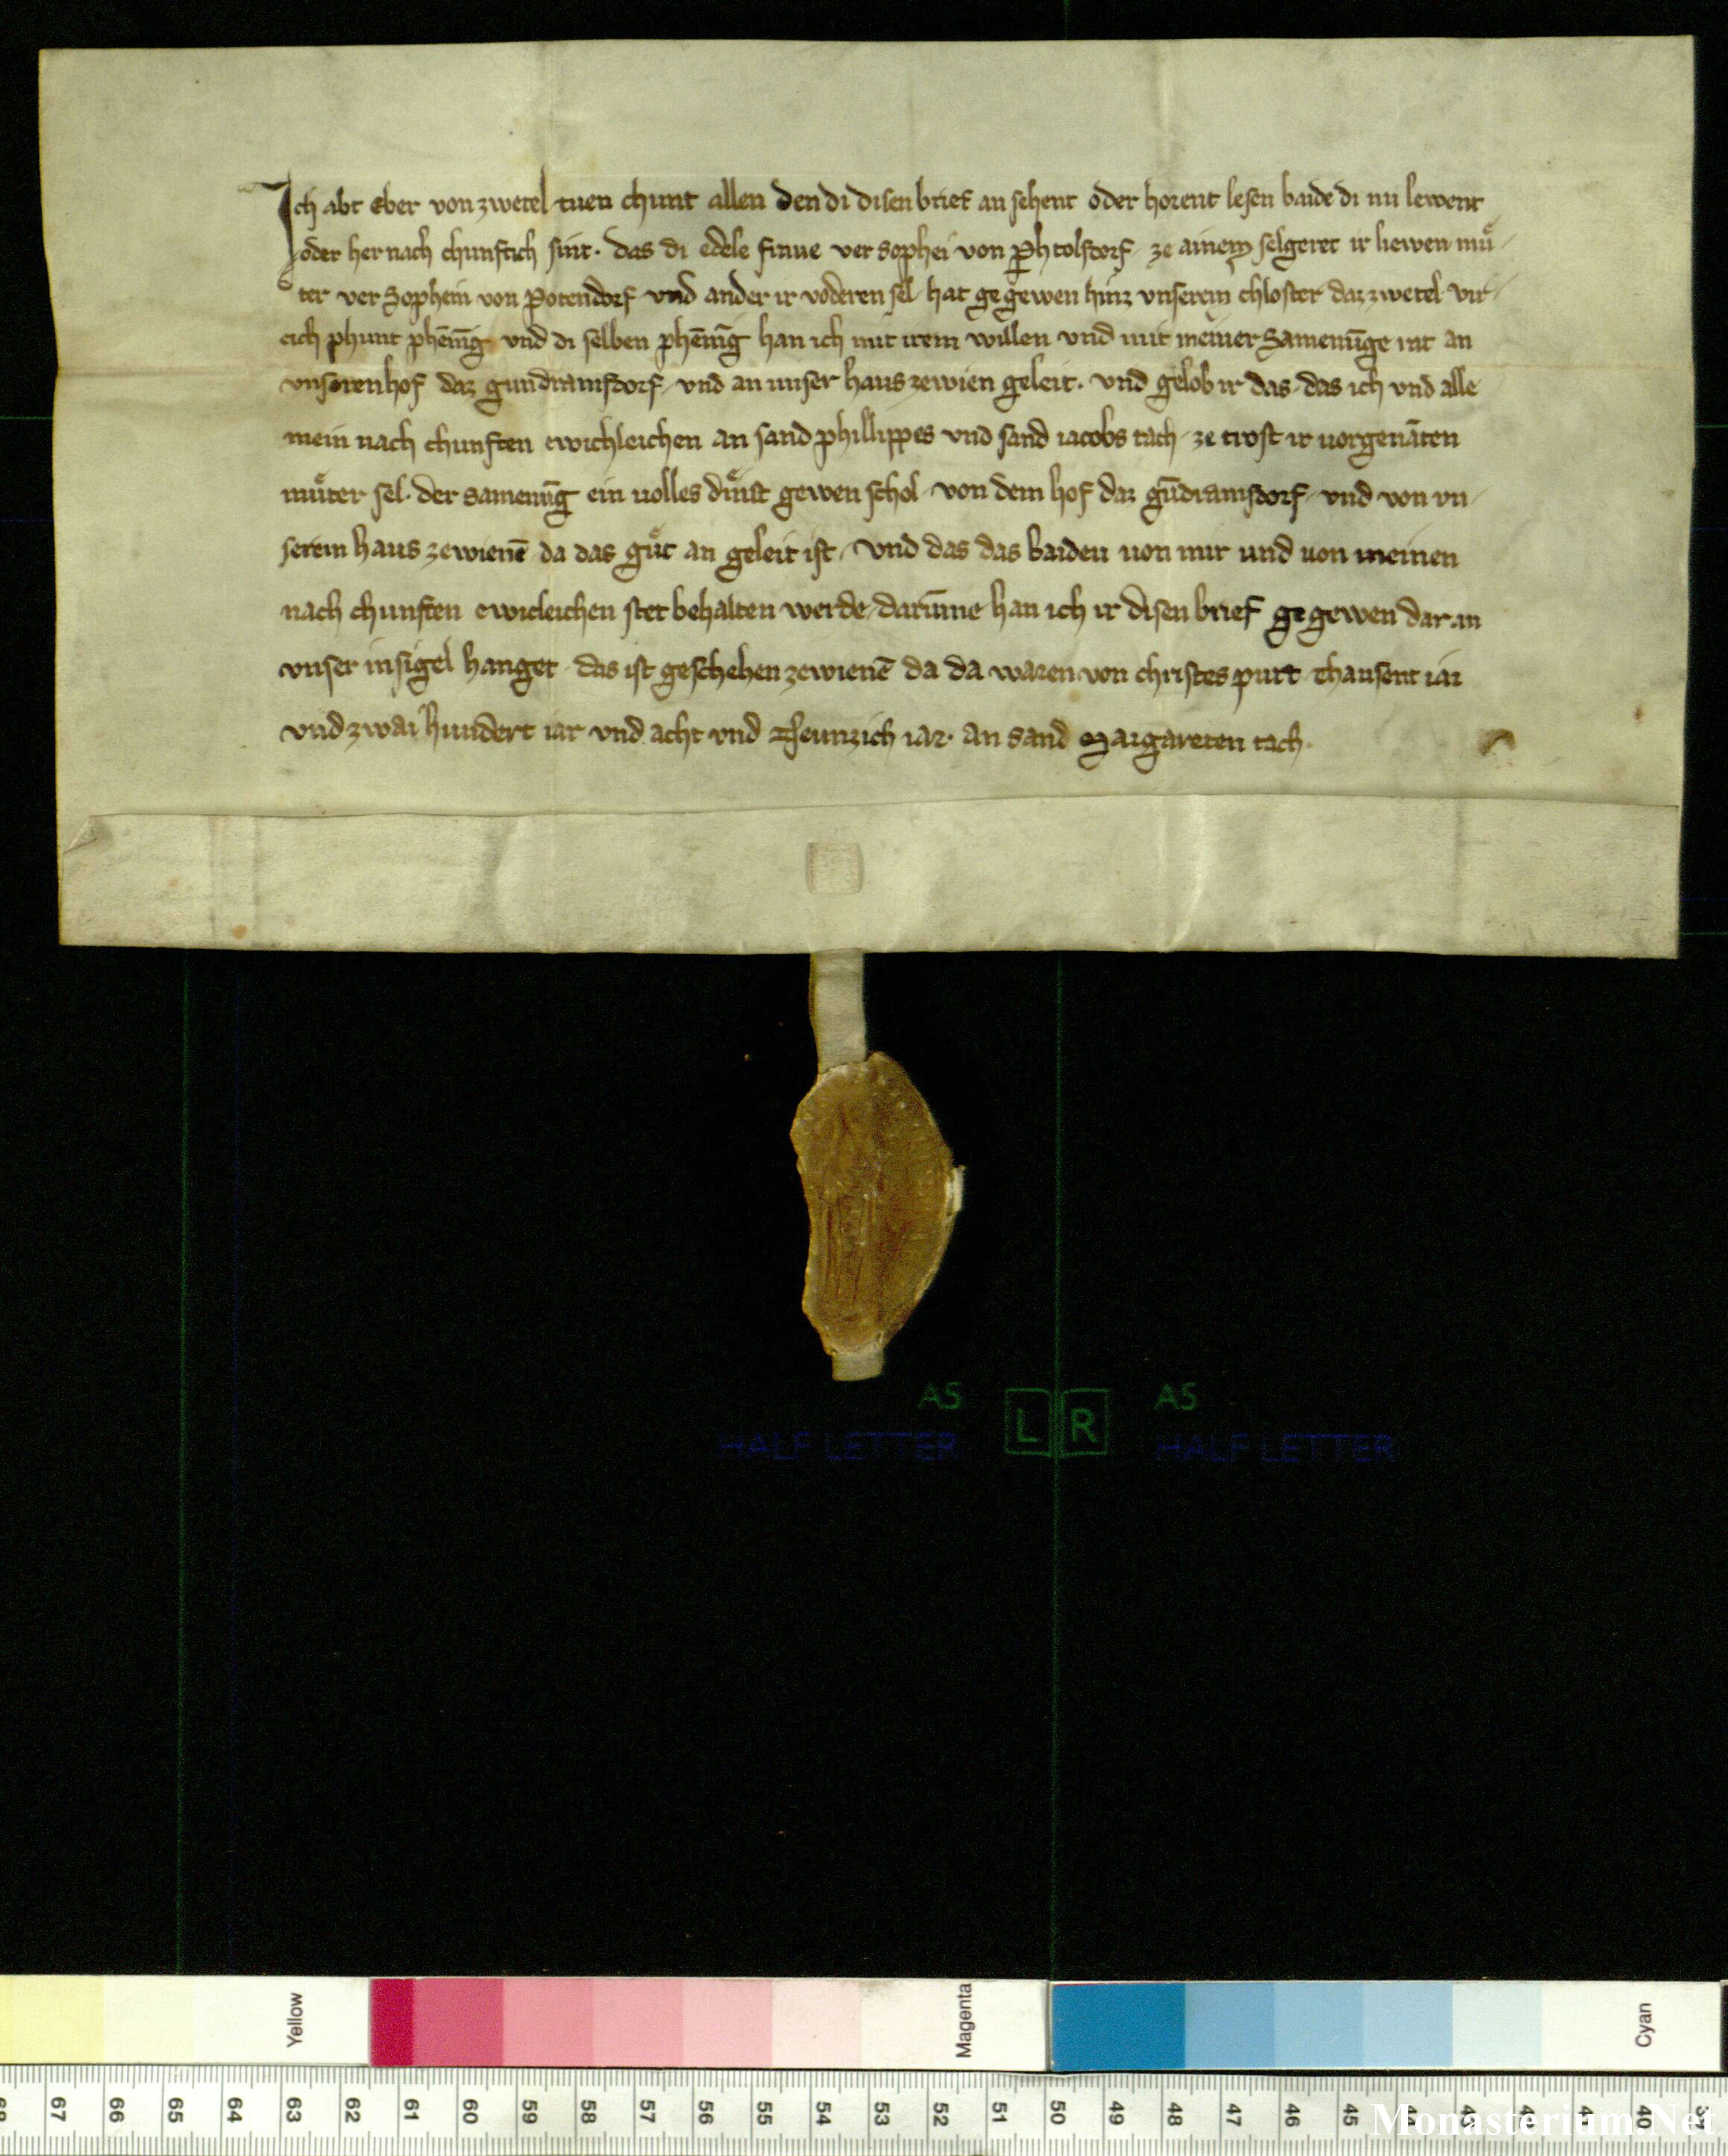 Ich abt Eber von zwetel tuen chunt allen den di disen brief an sehent oder horent lesen baide di nu lewent
oder her nach chunftich sint. das di edele frawe ver sophei von Phtolstorf ze ainem selgeret ir liewen muͤ-
ter ver Sophein von Potendorf vnd ander ir voderen sel hat gegewen hinz vnserem chloster daz zwetel vir-
cich phunt phēnīg vnd di selben phēnīg han ich mit irem willen vnd mit meiner Samenūge rat an
vnseren hof daz gundramstorf vnd an unser haus zewien geleit. vnd gelob ir das das ich vnd alle
mein nach chunften ewichleichen an sand phillippes vnd sand iacobs tach ze trost ir uorgenāten
muͤter sel. der samenūg ein uolles dinst gewen schol von dem hof daz gūdramstorf vnd von vn-
serem haus zewienē da das guͤt an geleit ist. Vnd das das baideu uon mir und uon meinen
nach chunften ewicleichen stet behalten werde darūme han ich ir disen brief gegewen dar an
vnser insigel hanget das ist geschehen zewienē da da waren von christes purt thausent iar
vnd zwai hundert iar vnd acht vnd Neunzich iar. an sand Margareten tach.
A5 L R A5
HALF LETTER HALF LETTER
Yellow Magenta Cyan
67 66 65 64 63 62 61 60 59 58 57 56 55 54 53 52 51 50 49 48 47 46 45 44 43 42 41 40
Monasterium.Net